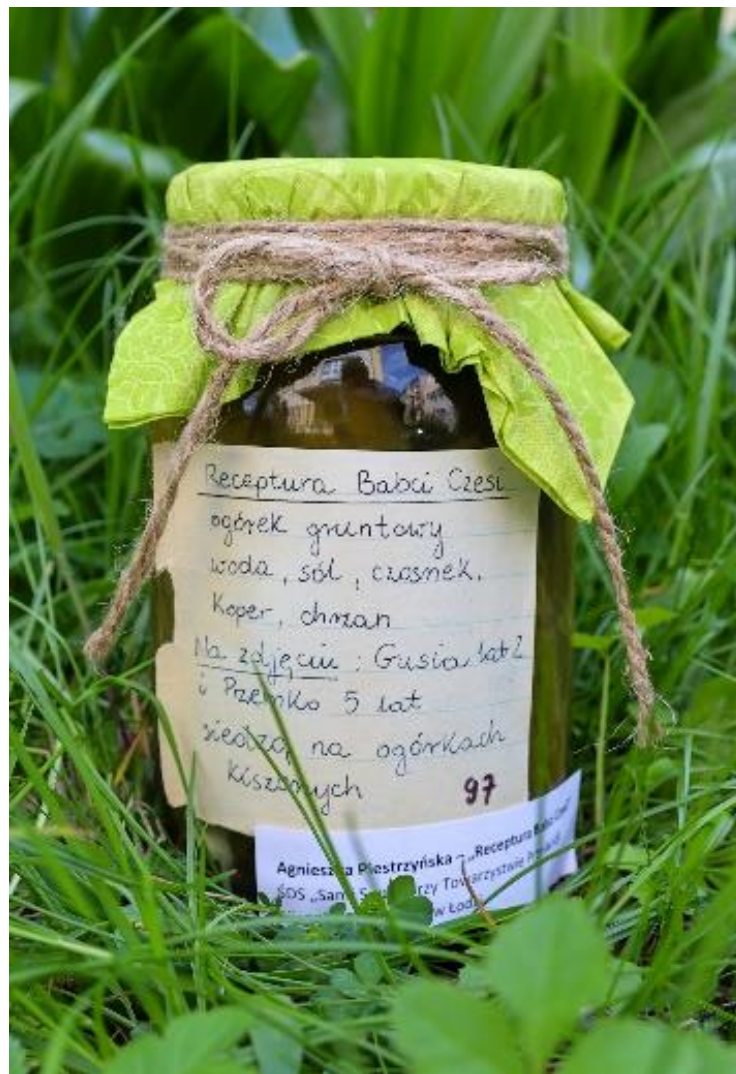 Receptura Babci Czesi
ogórek gruntowy
woda, sól, czosnek,
koper, chrzan
Na zdjęciu : Gusia lat 2
i Przemko 5 lat
siedzą na ogórkach
kiszonych
97
Agnieszka Piestrzyńska – „Receptura Babci Czesi”
ŚDS „Sami Sw przy Towarzystwie
w Łodzi